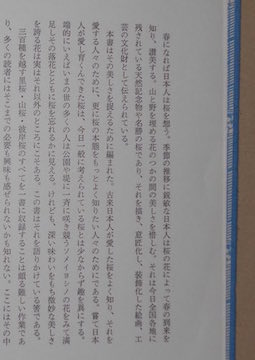 春になれば日本人は桜を想う。季節の推移に鋭敏な日本人は桜の花によって春の到来を
知り、讃美する。山と野を埋める花のつかの間の美しさを惜しむ。それは今日全国各地に
残されている天然記念物や名勝の桜であり、それを描き、意匠化し、装飾化した絵画、工
芸の文化財として伝えられている。
本書はその美しさを捉えるために編まれた。古来日本人が愛した桜をよく知り、それを
愛する人々のために、更に桜の本態をもっとよく知りたい人々のためにである。嘗て日本
人が愛し育くんできた桜は、今日一般に考えられている桜とは少なからず趣を異にする。
端的にいえばいまの世の多くの人は公園や堤に一斉に咲き競うソメイヨシノの花をみて満
足しその落花とともに桜を忘れるかに見える。けれども、深い味わいをもち微妙な美しさ
を誇る花は実はそれ以外のところにこそある。この書はそれを語りかけている筈である。
三百種を越す里桜・山桜・彼岸桜のすべてを一書に収録することは頗る難しい作業であ
り、多くの読者にはそこまでの必要も興味も感ぜられないかも知れない。ここにはその中